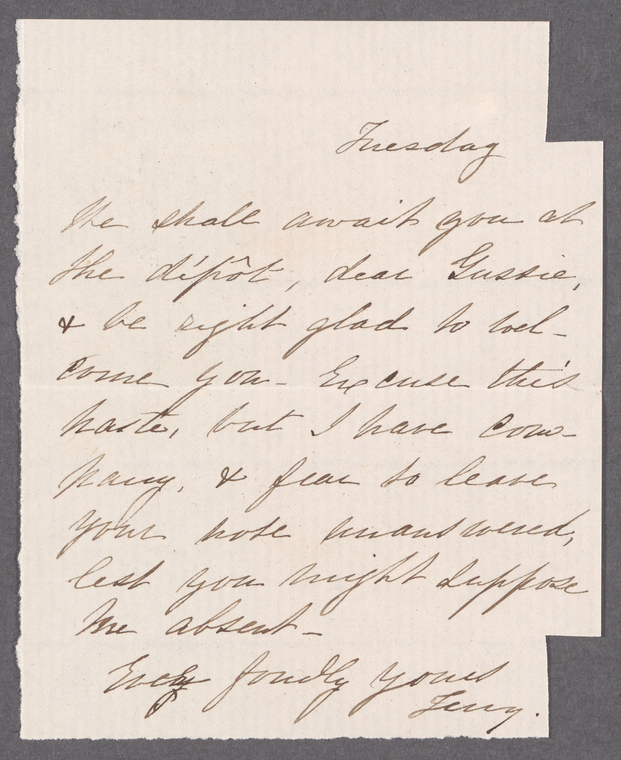 Tuesday
We shall await you at
the dépôt, dear Gussie,
& be right glad to wel-
come you - Excuse this
haste, but I have com-
pany, & fear to leave
your note unanswered,
lest you might suppose
me absent -
Ever fondly yours